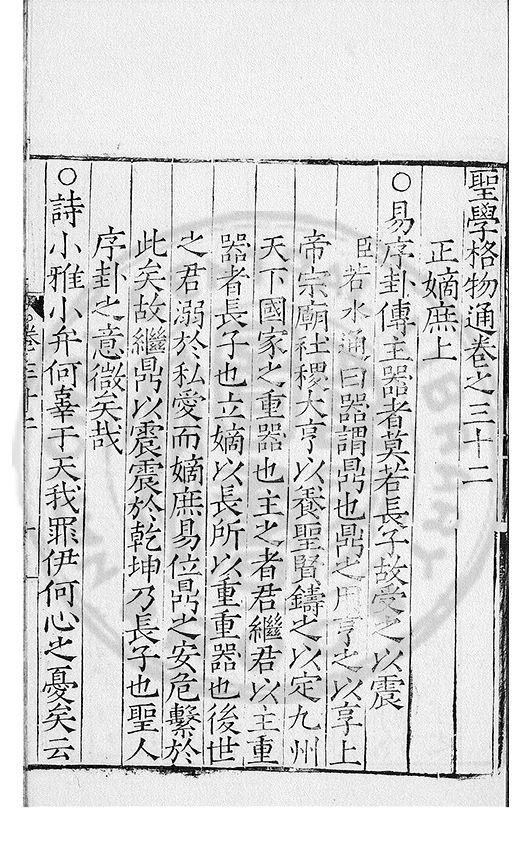 聖學格物通卷之三十二
正嫡庶上
○易序卦傳主器者莫若長子故受之以震
臣若水通曰器謂鼎也鼎之用亨之以享上
帝宗廟社稷大亨以養聖賢鑄之以定九州
天下國家之重器也主之者君繼君以主重
器者長子也立嫡以長所以重重器也後世
之君溺於私愛而嫡庶易位鼎之安危繫於
此矣故繼鼎以震震於乾坤乃長子也聖人
序卦之意微矣哉
○詩小雅小弁何辜于天我罪伊何心之憂矣云